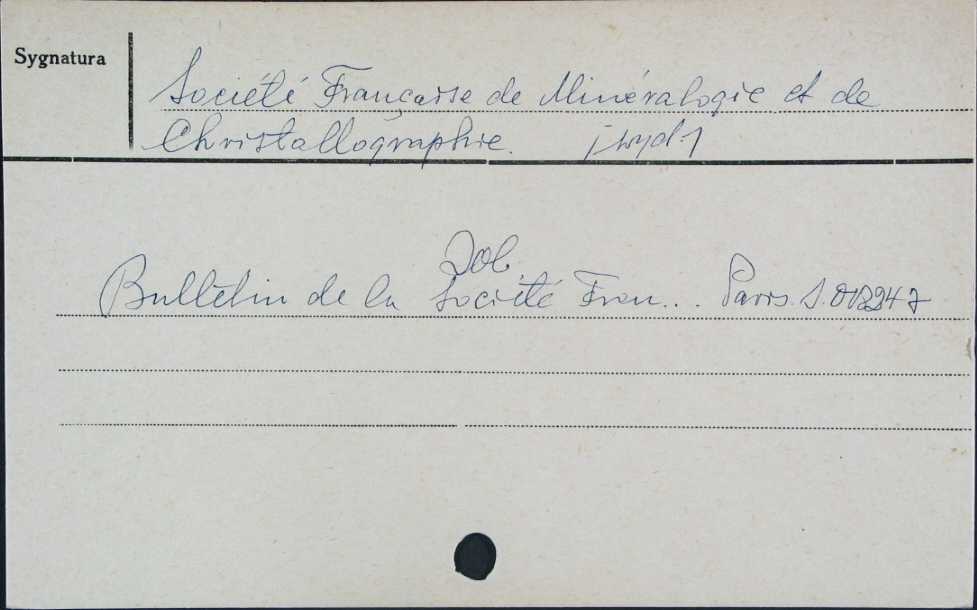 Sygnatura
Société Française de Minéralogie et de
Christallographie. /wyd./
Zob.
Bulletin de la Société Fran... Paris.